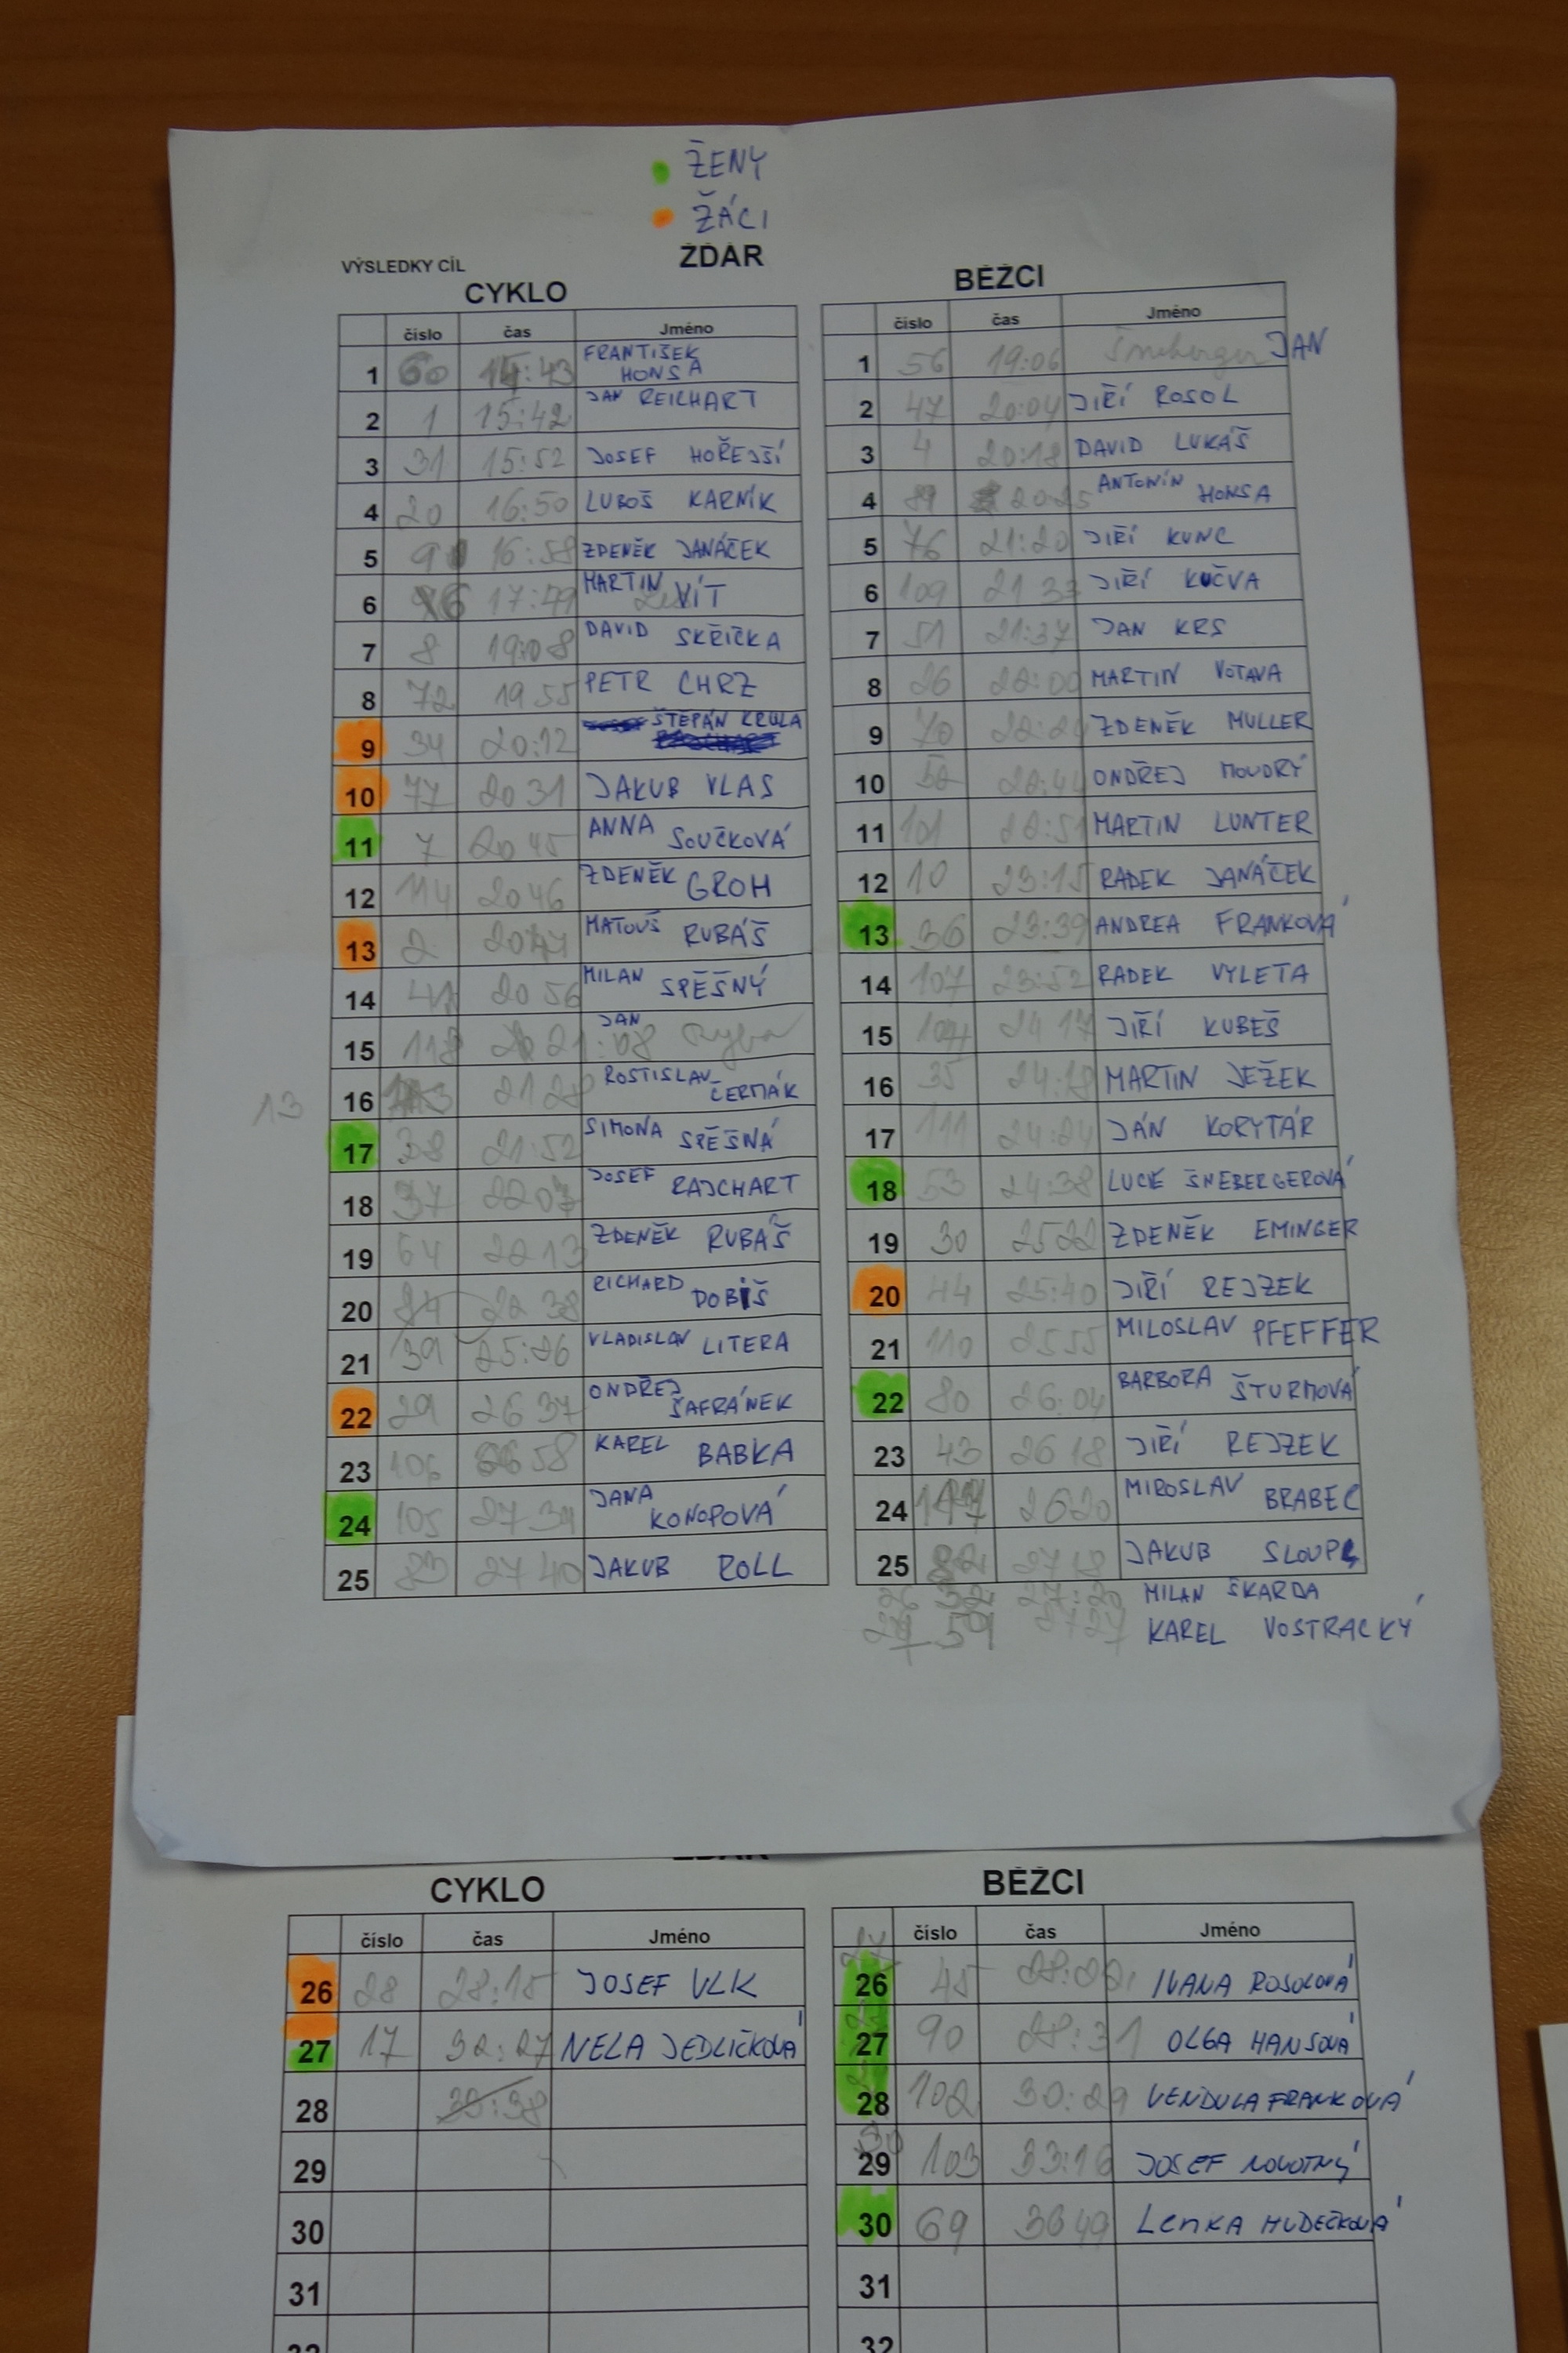 ŽENY
ŽÁCI
VÝSLEDKY CÍL
ŽĎÁR
CYKLO
číslo čas Jméno
1 60 14:43 FRANTIŠEK HONSA
2 1 15:42 JAN REICHART
3 31 15:52 JOSEF HOŘEJŠÍ
4 20 16:50 LUBOŠ KARNÍK
5 16:58 ZDENĚK JANÁČEK
6 17:49 MARTIN VÍT
7 8 19:08 DAVID SKŘIČKA
8 72 19 55 PETR CHRZ
9 34 20:12 ŠTĚPÁN KRULA
10 77 20 31 JAKUB VLAS
11 7 20 45 ANNA SOUČKOVÁ
12 114 20 46 ZDENĚK GROH
13 2 20 47 MATOUŠ RUBÁŠ
14 20 56 MILAN SPĚŠNÝ
15 118 21:08 JAN Ryba
13 16 21 28 ROSTISLAV ČERMÁK
17 38 21:52 SIMONA SPĚŠNÁ
18 37 22 07 JOSEF RAJCHART
19 64 22 13 ZDENĚK RUBÁŠ
20 22 38 RICHARD DOBIŠ
21 39 25:26 VLADISLAV LITERA
22 29 26 37 ONDŘEJ ŠAFRÁNEK
23 106 26 58 KAREL BABKA
24 105 27 34 JANA KONOPOVÁ
25 83 27 40 JAKUB ROLL
BĚŽCI
číslo čas Jméno
1 56 19:06 Šneberger JAN
2 47 20:04 JIŘÍ ROSOL
3 4 20:18 DAVID LUKÁŠ
4 89 20:25 ANTONÍN HONSA
5 76 21:20 JIŘÍ KUNC
6 109 21 33 JIŘÍ KUČVA
7 51 21:37 JAN KRS
8 26 22:00 MARTIN VOTAVA
9 70 22:29 ZDENĚK MULLER
10 22:44 ONDŘEJ MOUDRÝ
11 101 22:51 MARTIN LUNTER
12 10 23:15 RADEK JANÁČEK
13 36 23:39 ANDREA FRANKOVÁ
14 107 23:52 RADEK VYLETA
15 104 24 17 JIŘÍ KUBEŠ
16 35 24:18 MARTIN JEŽEK
17 111 24:24 JÁN KORYTÁR
18 53 24:38 LUCIE ŠNEBERGEROVÁ
19 30 25 22 ZDENĚK EMINGER
20 44 25:40 JIŘÍ REJZEK
21 110 25 55 MILOSLAV PFEFFER
22 80 26:04 BARBORA ŠTURMOVÁ
23 43 26 18 JIŘÍ REJZEK
24 26 20 MIROSLAV BRABEC
25 82 27 18 JAKUB SLOUP
26 32 27:20 MILAN ŠKARDA
27 59 27 27 KAREL VOSTRACKÝ
CYKLO
číslo čas Jméno
26 28 28:15 JOSEF VLK
27 17 32:27 NELA JEDLIČKOVÁ
28 39:38
29
30
31
BĚŽCI
číslo čas Jméno
26 45 IVANA ROSOLOVÁ
27 90 28:31 OLGA HANSOVÁ
28 102 30:29 VENDULA FRANKOVÁ
29 103 33:16 JOSEF NOVOTNÝ
30 69 36 49 LENKA HUDEČKOVÁ
31
32